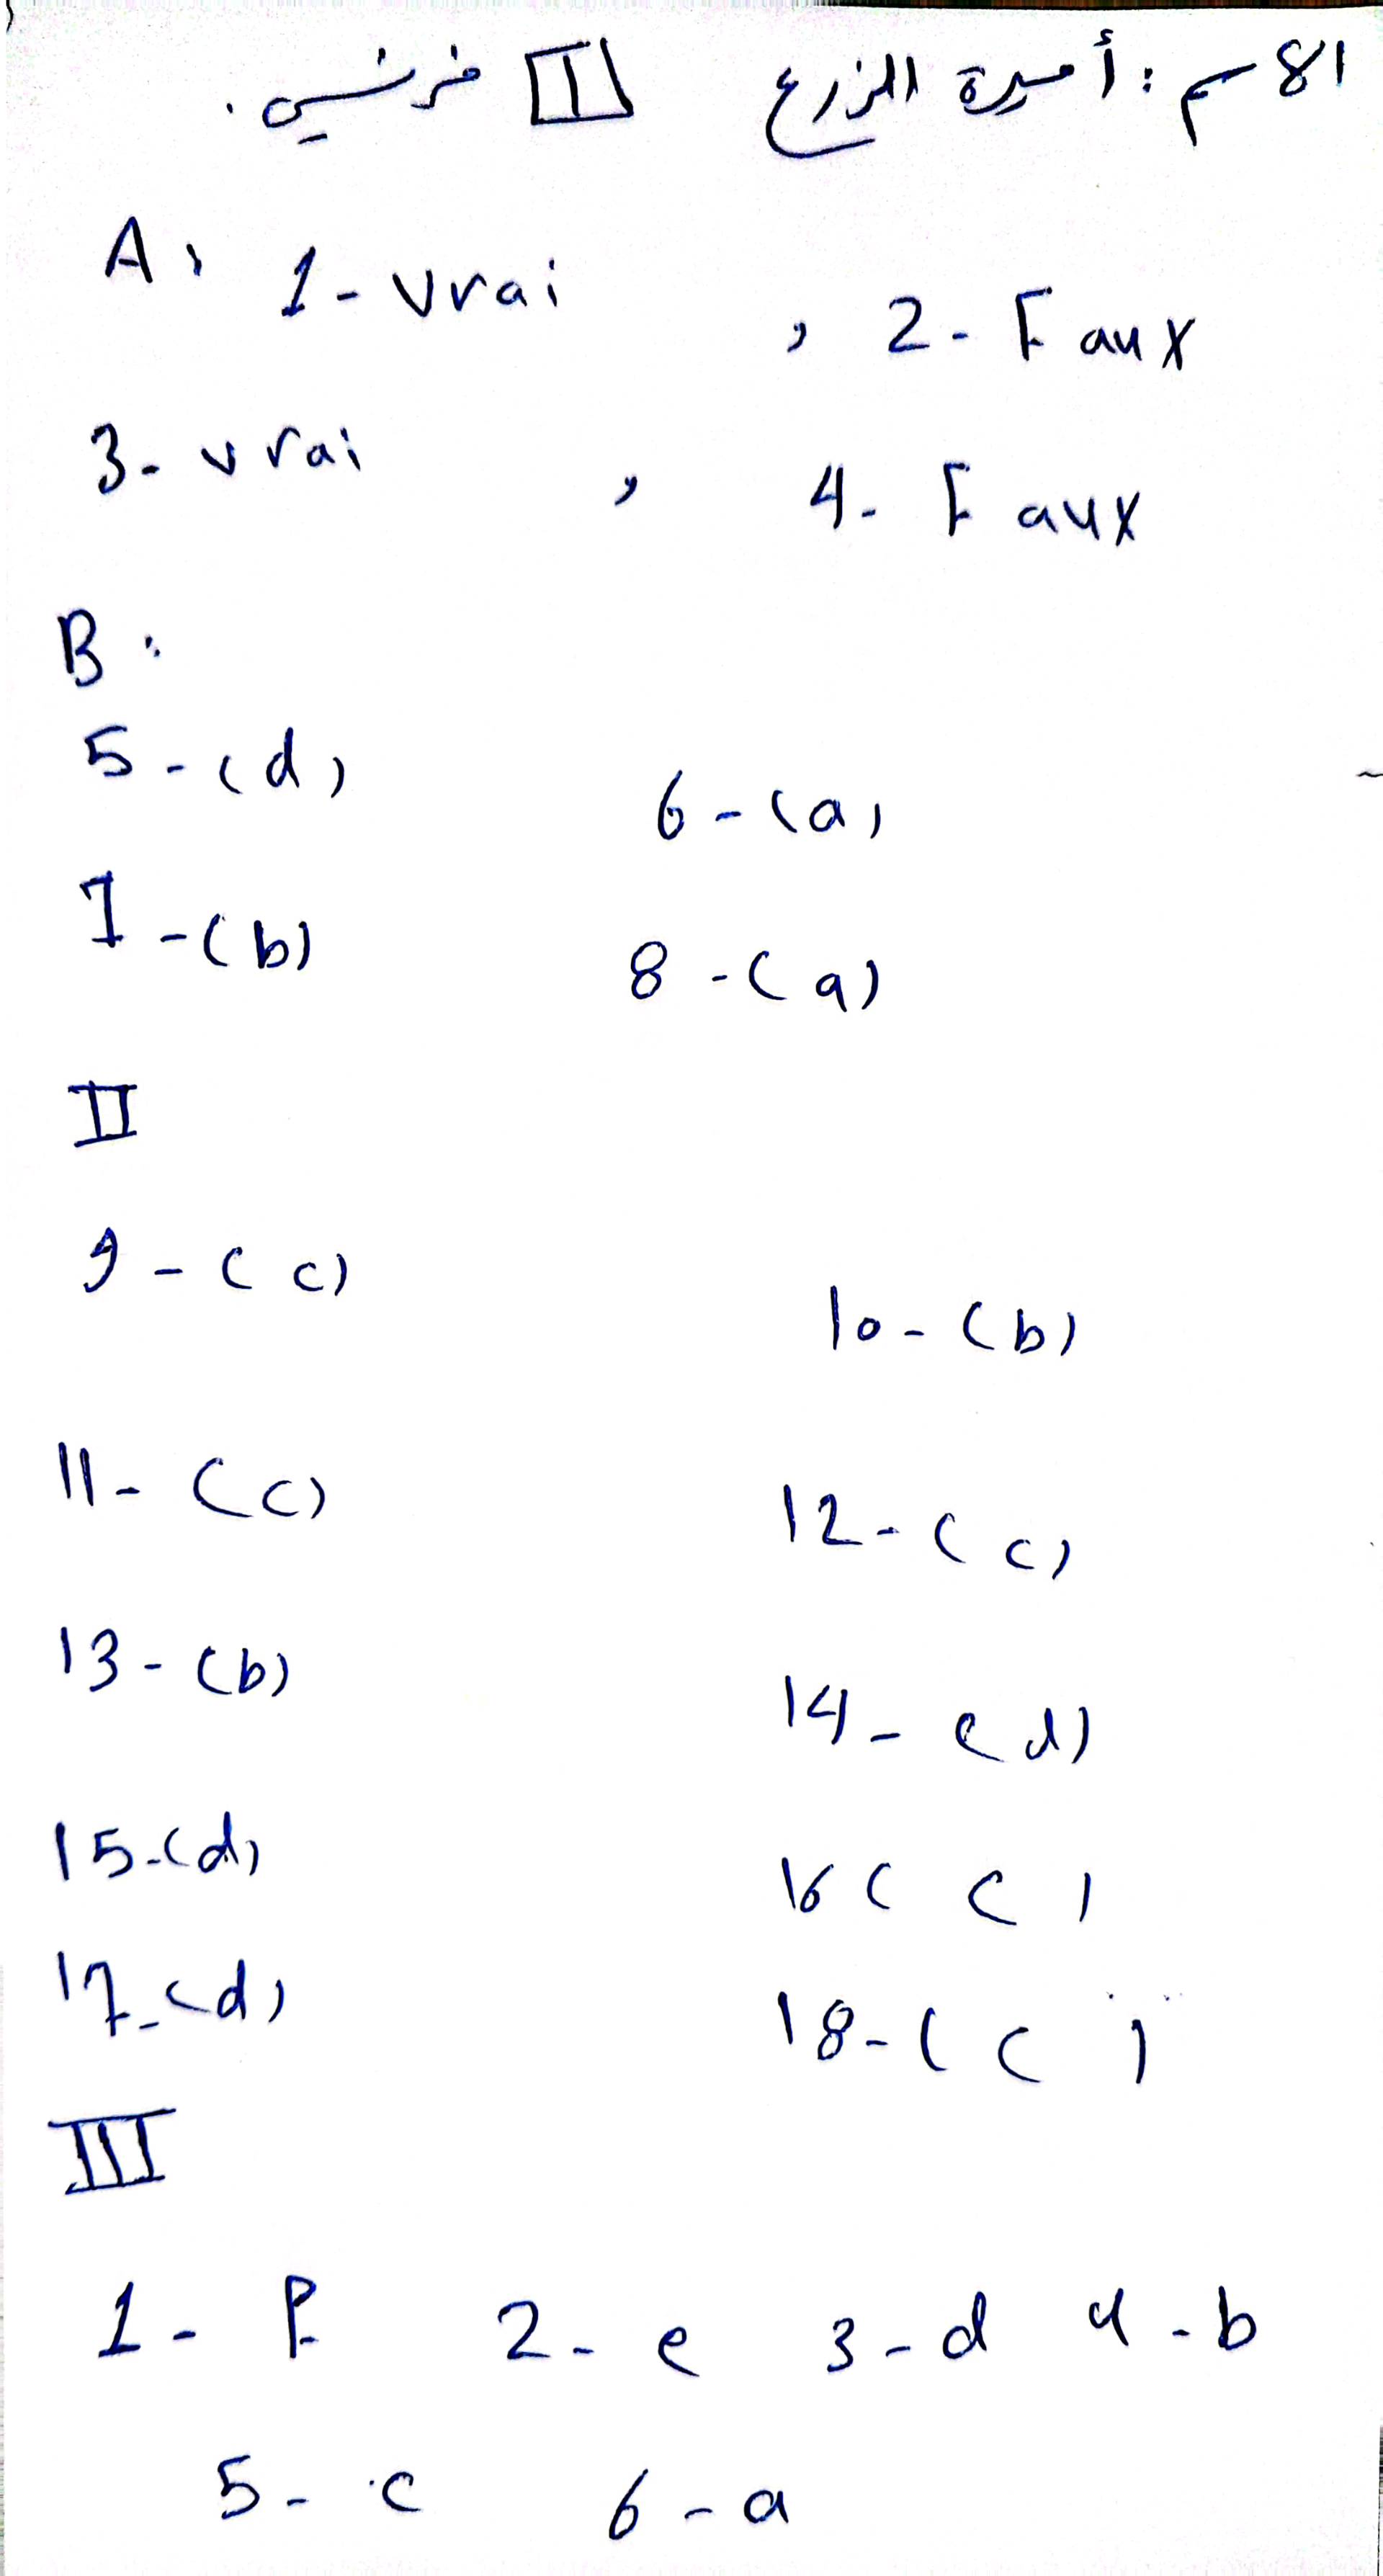 الاسم : أميرة الزرع I فرنسي .
A, 1- vrai , 2- Faux
3- vrai , 4- Faux
B :
5-(d) 6-(a)
7-(b) 8-(a)
II
9-(c) 10-(b)
11-(c) 12-(c)
13-(b) 14-(d)
15-(d) 16(c)
17-(d) 18-(c)
III
1- f 2- e 3- d 4- b
5- c 6- a